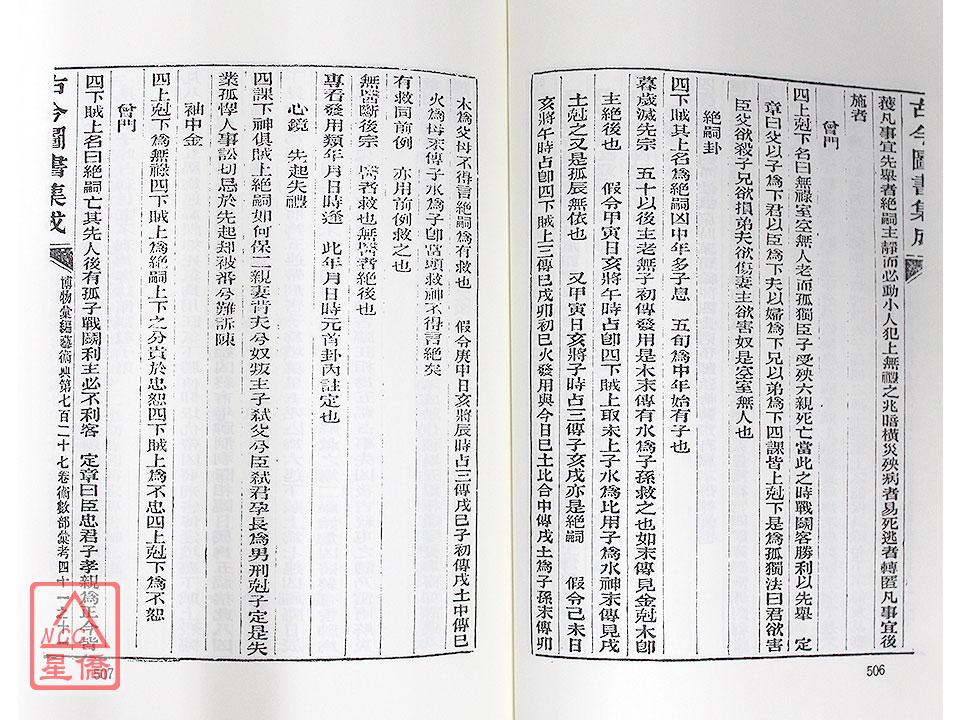 古今圖書集成
蔑凡事宜先舉者絕嗣主靜而必動小人犯上無禮之兆暗橫災殃病者易死逃者轉匿凡事宜後
施者
曾門
四上尅下名曰無祿室室無人老而孤獨臣子受殃六親死亡當此之時戰鬭客勝利以先舉　定
章曰父以子為下君以臣為下夫以婦為下兄以弟為下四課皆上尅下是為孤獨法曰君欲害
臣父欲殺子兄欲損弟夫欲傷妻主欲害奴是空室無人也
絕嗣卦
四下賊其上名為絕嗣凶中年多子息　五旬為中年始有子也
暮歲滅先宗　五十以後主老無子初傳發用是木末傳有水為子孫救之也如末傳見金尅木卽
主絕後也　假令甲寅日亥將午時占卽四下賊上取未上子水為比用子為水神末傳見戌
土尅之又是孤辰無依也　又甲寅日亥將子時占三傳子亥戌亦是絕嗣　假令己未日
亥將午時占卽四下賊上三傳巳戌卯初巳火發用與今日巳土比合中傳戌土為子孫末傳卯
506
木為父母不得言絕嗣為有救也　假令庚申日亥將辰時占三傳戌巳子初傳戌土中傳巳
火為母末傳子水為子卽當頭救神不得言絕矣
有救同前例　亦用前例救之也
無醫斷後宗　醫者救也無醫者絕後也
專看發用類年月日時逢　此年月日時元首卦內註定也
心鏡　先起失禮
四課下神俱賊上絕嗣如何保二親妻背夫兮奴叛主子弒父兮臣弒君孕長為男刑尅子定是失
業孤惸人事訟切忌於先起却被番兮難訴陳
袖中金
四上尅下為無祿四下賊上為絕嗣上下之分貴於忠恕四下賊上為不忠四上尅下為不恕
曾門
四下賊上名曰絕嗣亡其先人後有孤子戰鬭利主必不利客　定章曰臣忠君子孝親為正今皆
古今圖書集成
博物彙編藝術典第七百二十七卷術數部彙考四十一之十一
507
NCC
星僑